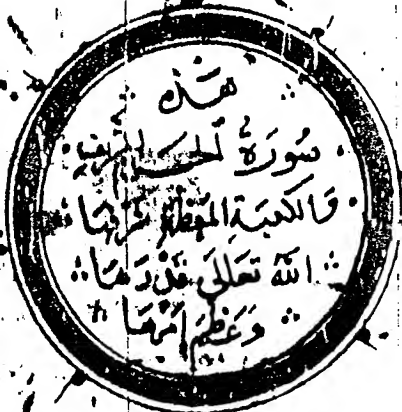 هذه
سورة الحرم الشريف
والكعبة المعظمة شرفها
الله تعالى
وعظم امرها